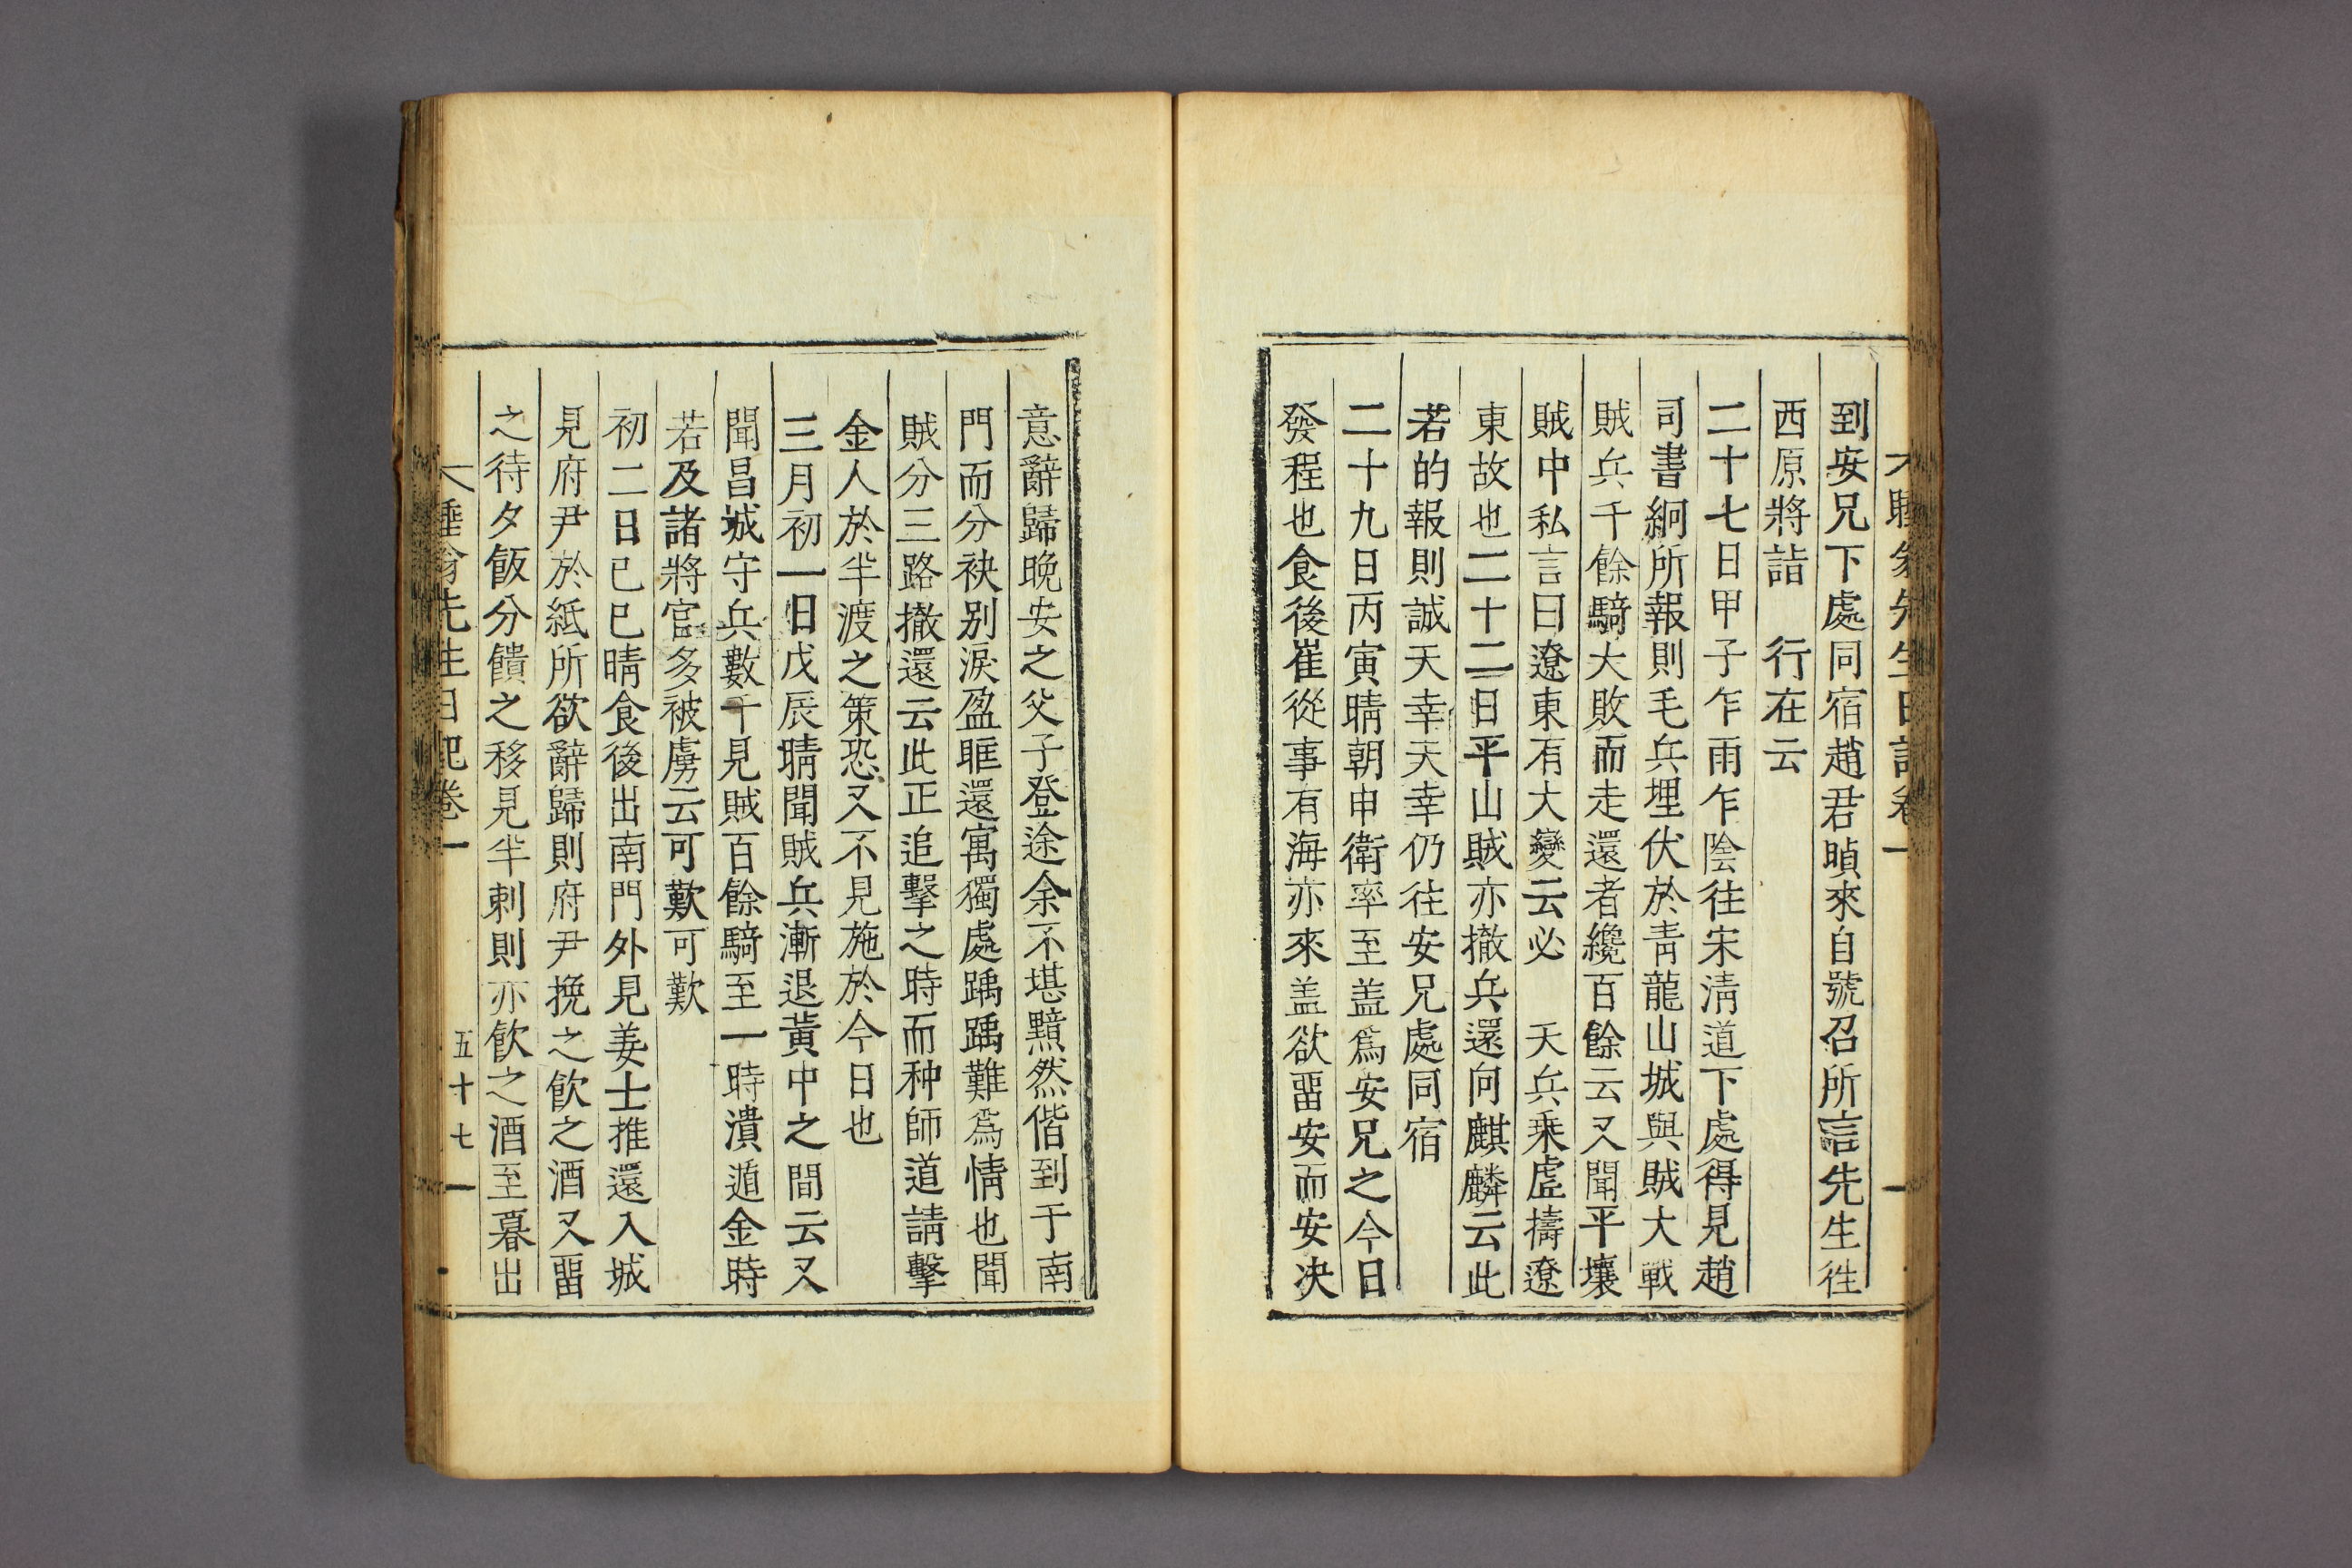 不睡翁先生日記卷一
到安兄下處同宿趙君暊來自號召所言先生徃
西原將詣　行在云
二十七日甲子乍雨乍陰往宋淸道下處得見趙
司書絅所報則毛兵埋伏於靑龍山城與賊大戰
賊兵千餘騎大敗而走還者纔百餘云又聞平壤
賊中私言曰遼東有大變云必　天兵乗虛擣遼
東故也二十二日平山賊亦撤兵還向麒麟云此
若的報則誠天幸天幸仍往安兄處同宿
二十九日丙寅晴朝申衛率至盖爲安兄之今日
發程也食後崔從事有海亦來盖欲畱安而安决
意辭歸晚安之父子登途余不堪黯然偕到于南
門而分袂别淚盈眶還寓獨處踽踽難爲情也聞
賊分三路撤還云此正追擊之時而种師道請擊
金人於半渡之策恐又不見施於今日也
三月初一日戊辰晴聞賊兵漸退黃中之間云又
聞昌城守兵數千見賊百餘騎至一時潰遁金時
若及諸將官多被虜云可歎可歎
初二日己巳晴食後出南門外見姜士推還入城
見府尹於紙所欲辭歸則府尹挽之飮之酒又畱
之待夕飯分饋之移見半刺則亦飮之酒至暮出
不睡翁先生日記卷一　五十七